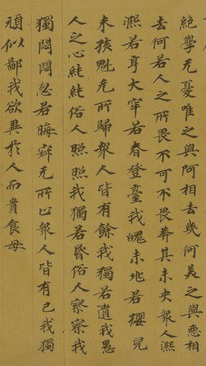 絕學无憂唯之與阿相去幾何美之與惡相
去何若人之所畏不可不畏莽其未央衆人熙
熙若享大宰若春登臺我魄未兆若嬰兒
未孩魁无所歸衆人皆有餘我獨若遺我愚
人之心純純俗人照照我獨若昏俗人察察我
獨悶悶忽若晦寂无所止衆人皆有已我獨
頑似鄙我欲異於人而貴食母